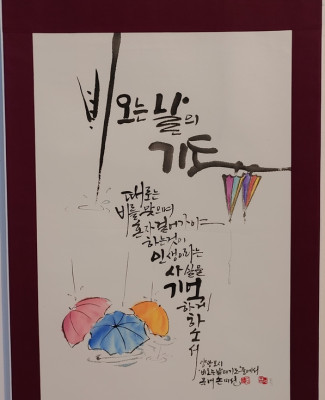 비 오는 날의
기도
때로는
비를 맞으며
혼자 걸어가야
하는 것이
인생이라는
사실을
기억
하게
하소서